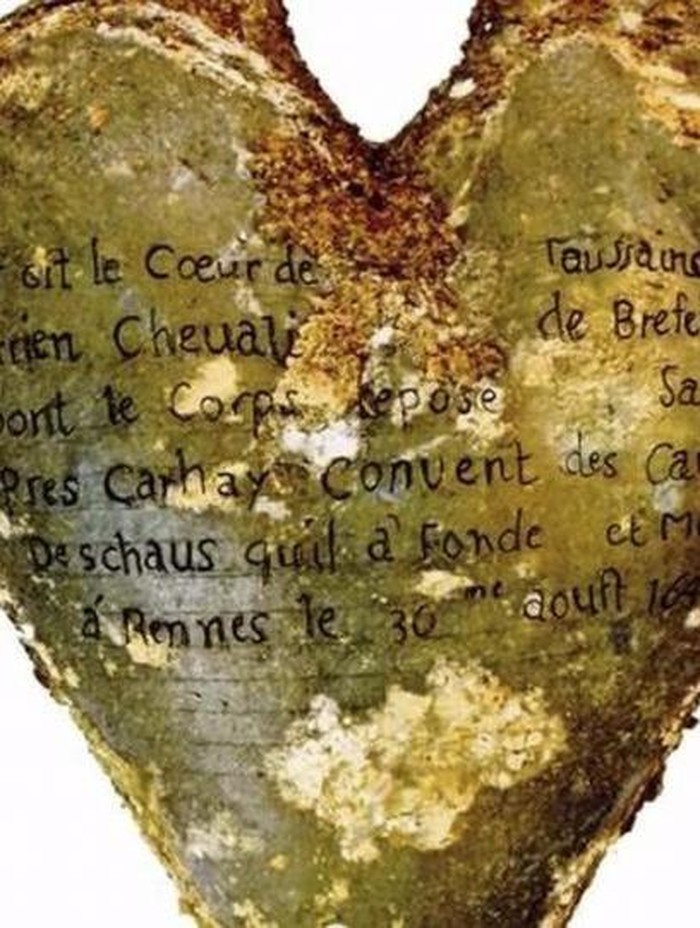 ait le Cœur de Toussainc
rien Cheuali de Brefe
le Corps Repose Sa
Pres Carhay Convent des Car
Deschaus quil a Fonde et M
á Rennes le 30me aoust 16